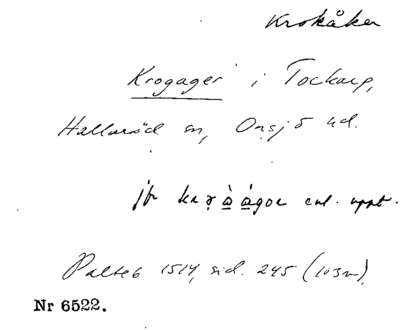 Krokåker
Krogager i Tockarp,
Hallaröd sn, Onsjö hd.
jfr enl. uppt.
Palteb 1514, sid. 245 (103v),
Nr 6522.